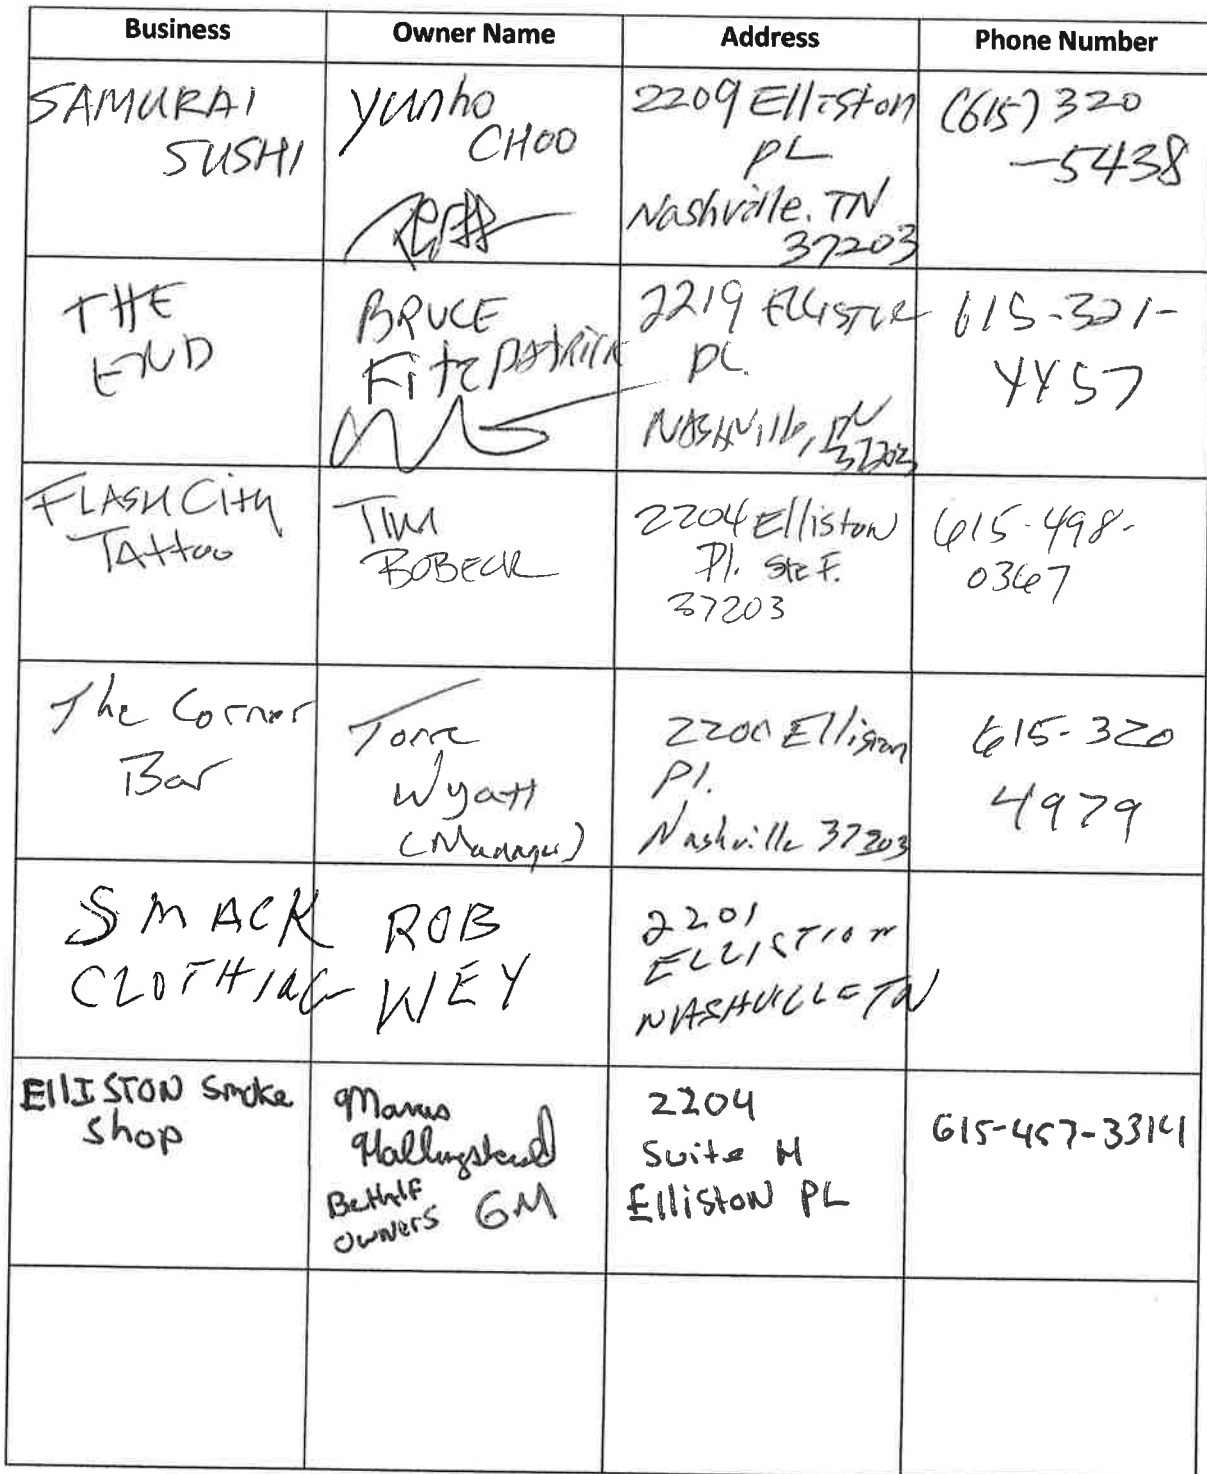 Business Owner Name Address Phone Number
SAMURAI
SUSHI
Yunho
CHOO
2209 Elliston
PL
Nashville, TN
37203
(615) 320
-5438
THE
END
BRUCE
FitzPatrick
2219 Elliston
PL.
NASHVille, TN
37203
615-321-
4457
FLASH City
TAttoo
Tim
BOBECK
2204 Elliston
Pl. Ste F.
37203
615-498-
0367
The Corner
Bar
Wyatt
(Manager)
2200 Elliston
Pl.
Nashville 37203
615-320
4979
SMACK
CLOTHING
ROB
WEY
2201
ELLISTION
NASHVILLE TN
EllISTON Smoke
Shop
Marcus
BeHAlF
owners GM
2204
Suite H
Elliston PL
615-457-3314